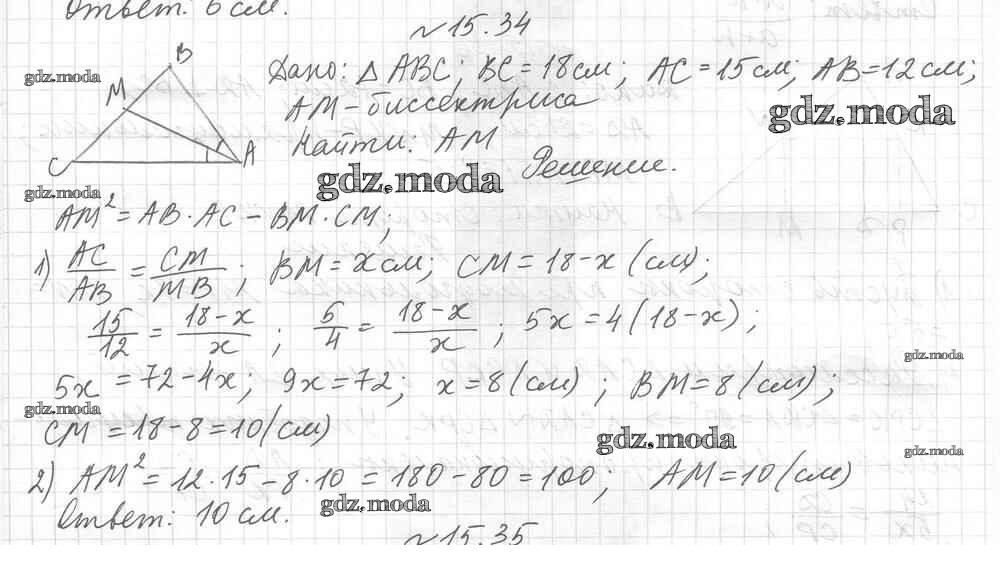 Ответ: 6 см.
№15.34
B
M
C
A
Дано: △ABC; BC = 18 см; AC = 15 см; AB = 12 см;
AM - биссектриса
Найти: AM
Решение.
AM² = AB · AC - BM · CM;
1) AC/AB = CM/MB; BM = x см; CM = 18 - x (см);
15/12 = 18-x/x; 5/4 = 18-x/x; 5x = 4(18-x);
5x = 72 - 4x; 9x = 72; x = 8 (см); BM = 8 (см);
CM = 18 - 8 = 10 (см)
2) AM² = 12 · 15 - 8 · 10 = 180 - 80 = 100; AM = 10 (см)
Ответ: 10 см.
№15.35
gdz.moda
gdz.moda
gdz.moda
gdz.moda
gdz.moda
gdz.moda
gdz.moda
gdz.moda
gdz.moda